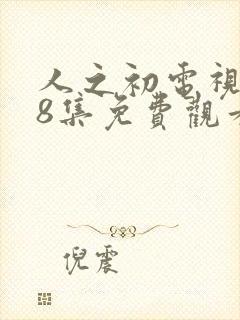 人之初電視
8集免費觀
倪震